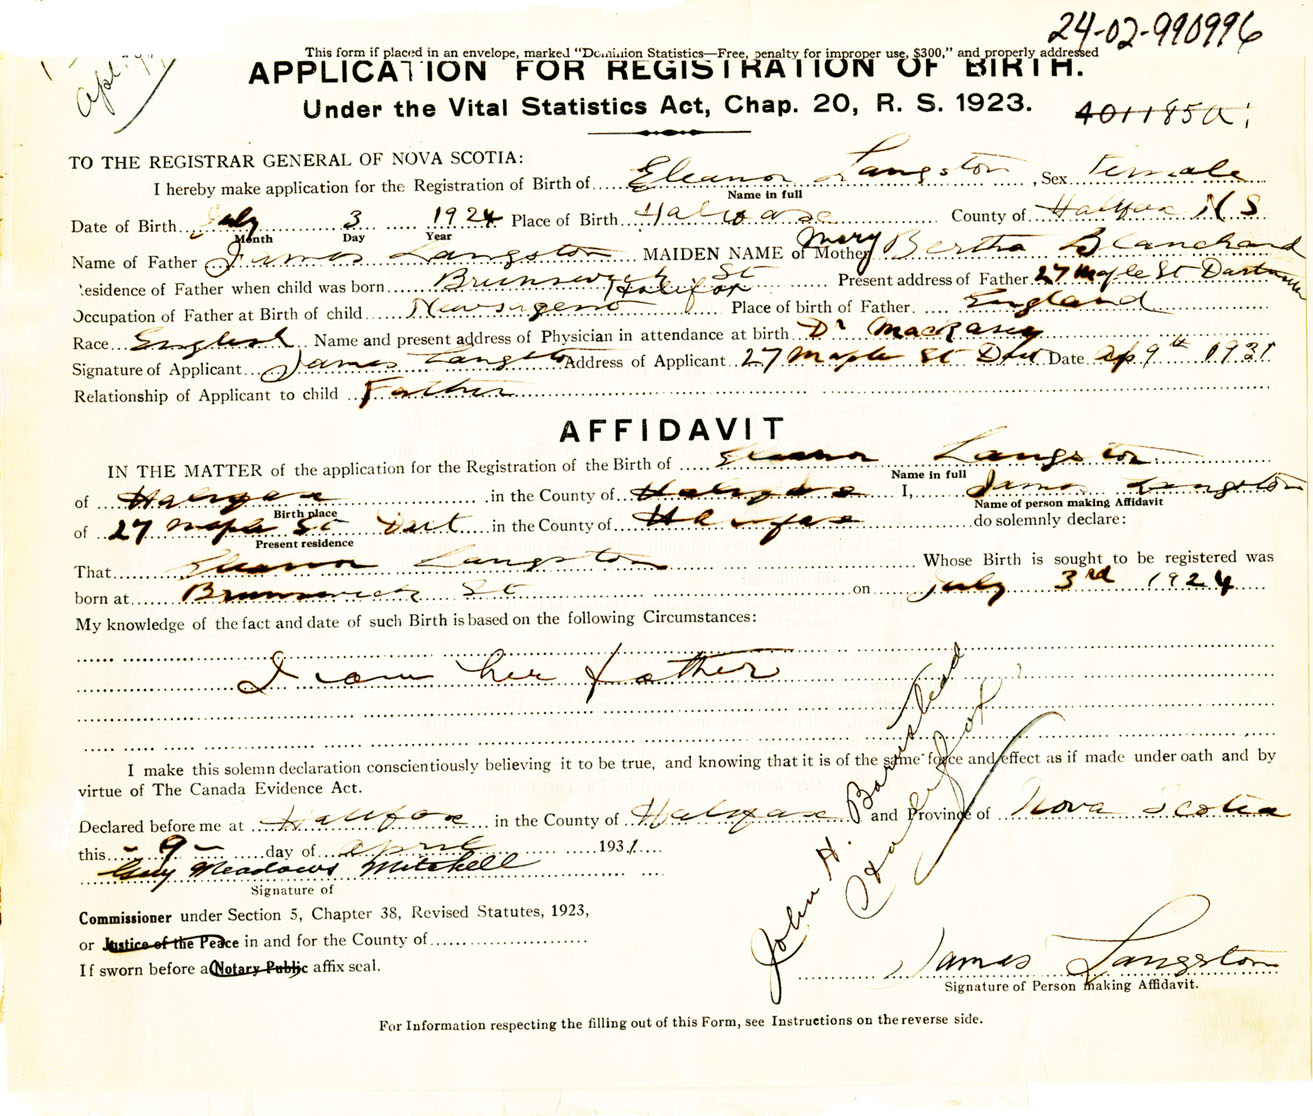 24-02-990996
This form if placed in an envelope, marked "Dominion Statistics—Free, penalty for improper use, $300," and properly addressed
APPLICATION FOR REGISTRATION OF BIRTH.
Under the Vital Statistics Act, Chap. 20, R. S. 1923.
401185a
TO THE REGISTRAR GENERAL OF NOVA SCOTIA:
I hereby make application for the Registration of Birth of Eleanor Langston, Sex Female
Name in full
Date of Birth July 3 1924 Place of Birth Halifax County of Halifax N S
Month Day Year
Name of Father James Langston MAIDEN NAME of Mother Mary Bertha Blanchard
Residence of Father when child was born Brunswick St Halifax Present address of Father 27 Maple St Dartmouth
Occupation of Father at Birth of child Newsagent Place of birth of Father. England
Race English Name and present address of Physician in attendance at birth Dr
Signature of Applicant James Langston Address of Applicant 27 Maple St Dart Date Ap 9th 1931
Relationship of Applicant to child Father
AFFIDAVIT
IN THE MATTER of the application for the Registration of the Birth of Eleanor Langston
Name in full
of Halifax in the County of Halifax I, James Langston
Birth place Name of person making Affidavit
of 27 Maple St Dart in the County of Halifax do solemnly declare:
Present residence
That Eleanor Langston Whose Birth is sought to be registered was
born at Brunswick St on July 3rd 1924
My knowledge of the fact and date of such Birth is based on the following Circumstances:
I am her father
I make this solemn declaration conscientiously believing it to be true, and knowing that it is of the same force and effect as if made under oath and by
virtue of The Canada Evidence Act.
Declared before me at Halifax in the County of Halifax and Province of Nova Scotia
this - 9 - day of April 1931
Guy Meadows Mitchell
Signature of
Commissioner under Section 5, Chapter 38, Revised Statutes, 1923,
or Justice of the Peace in and for the County of
If sworn before a Notary Public affix seal.
John H. Barnstead
Halifax
James Langston
Signature of Person making Affidavit.
For Information respecting the filling out of this Form, see Instructions on the reverse side.